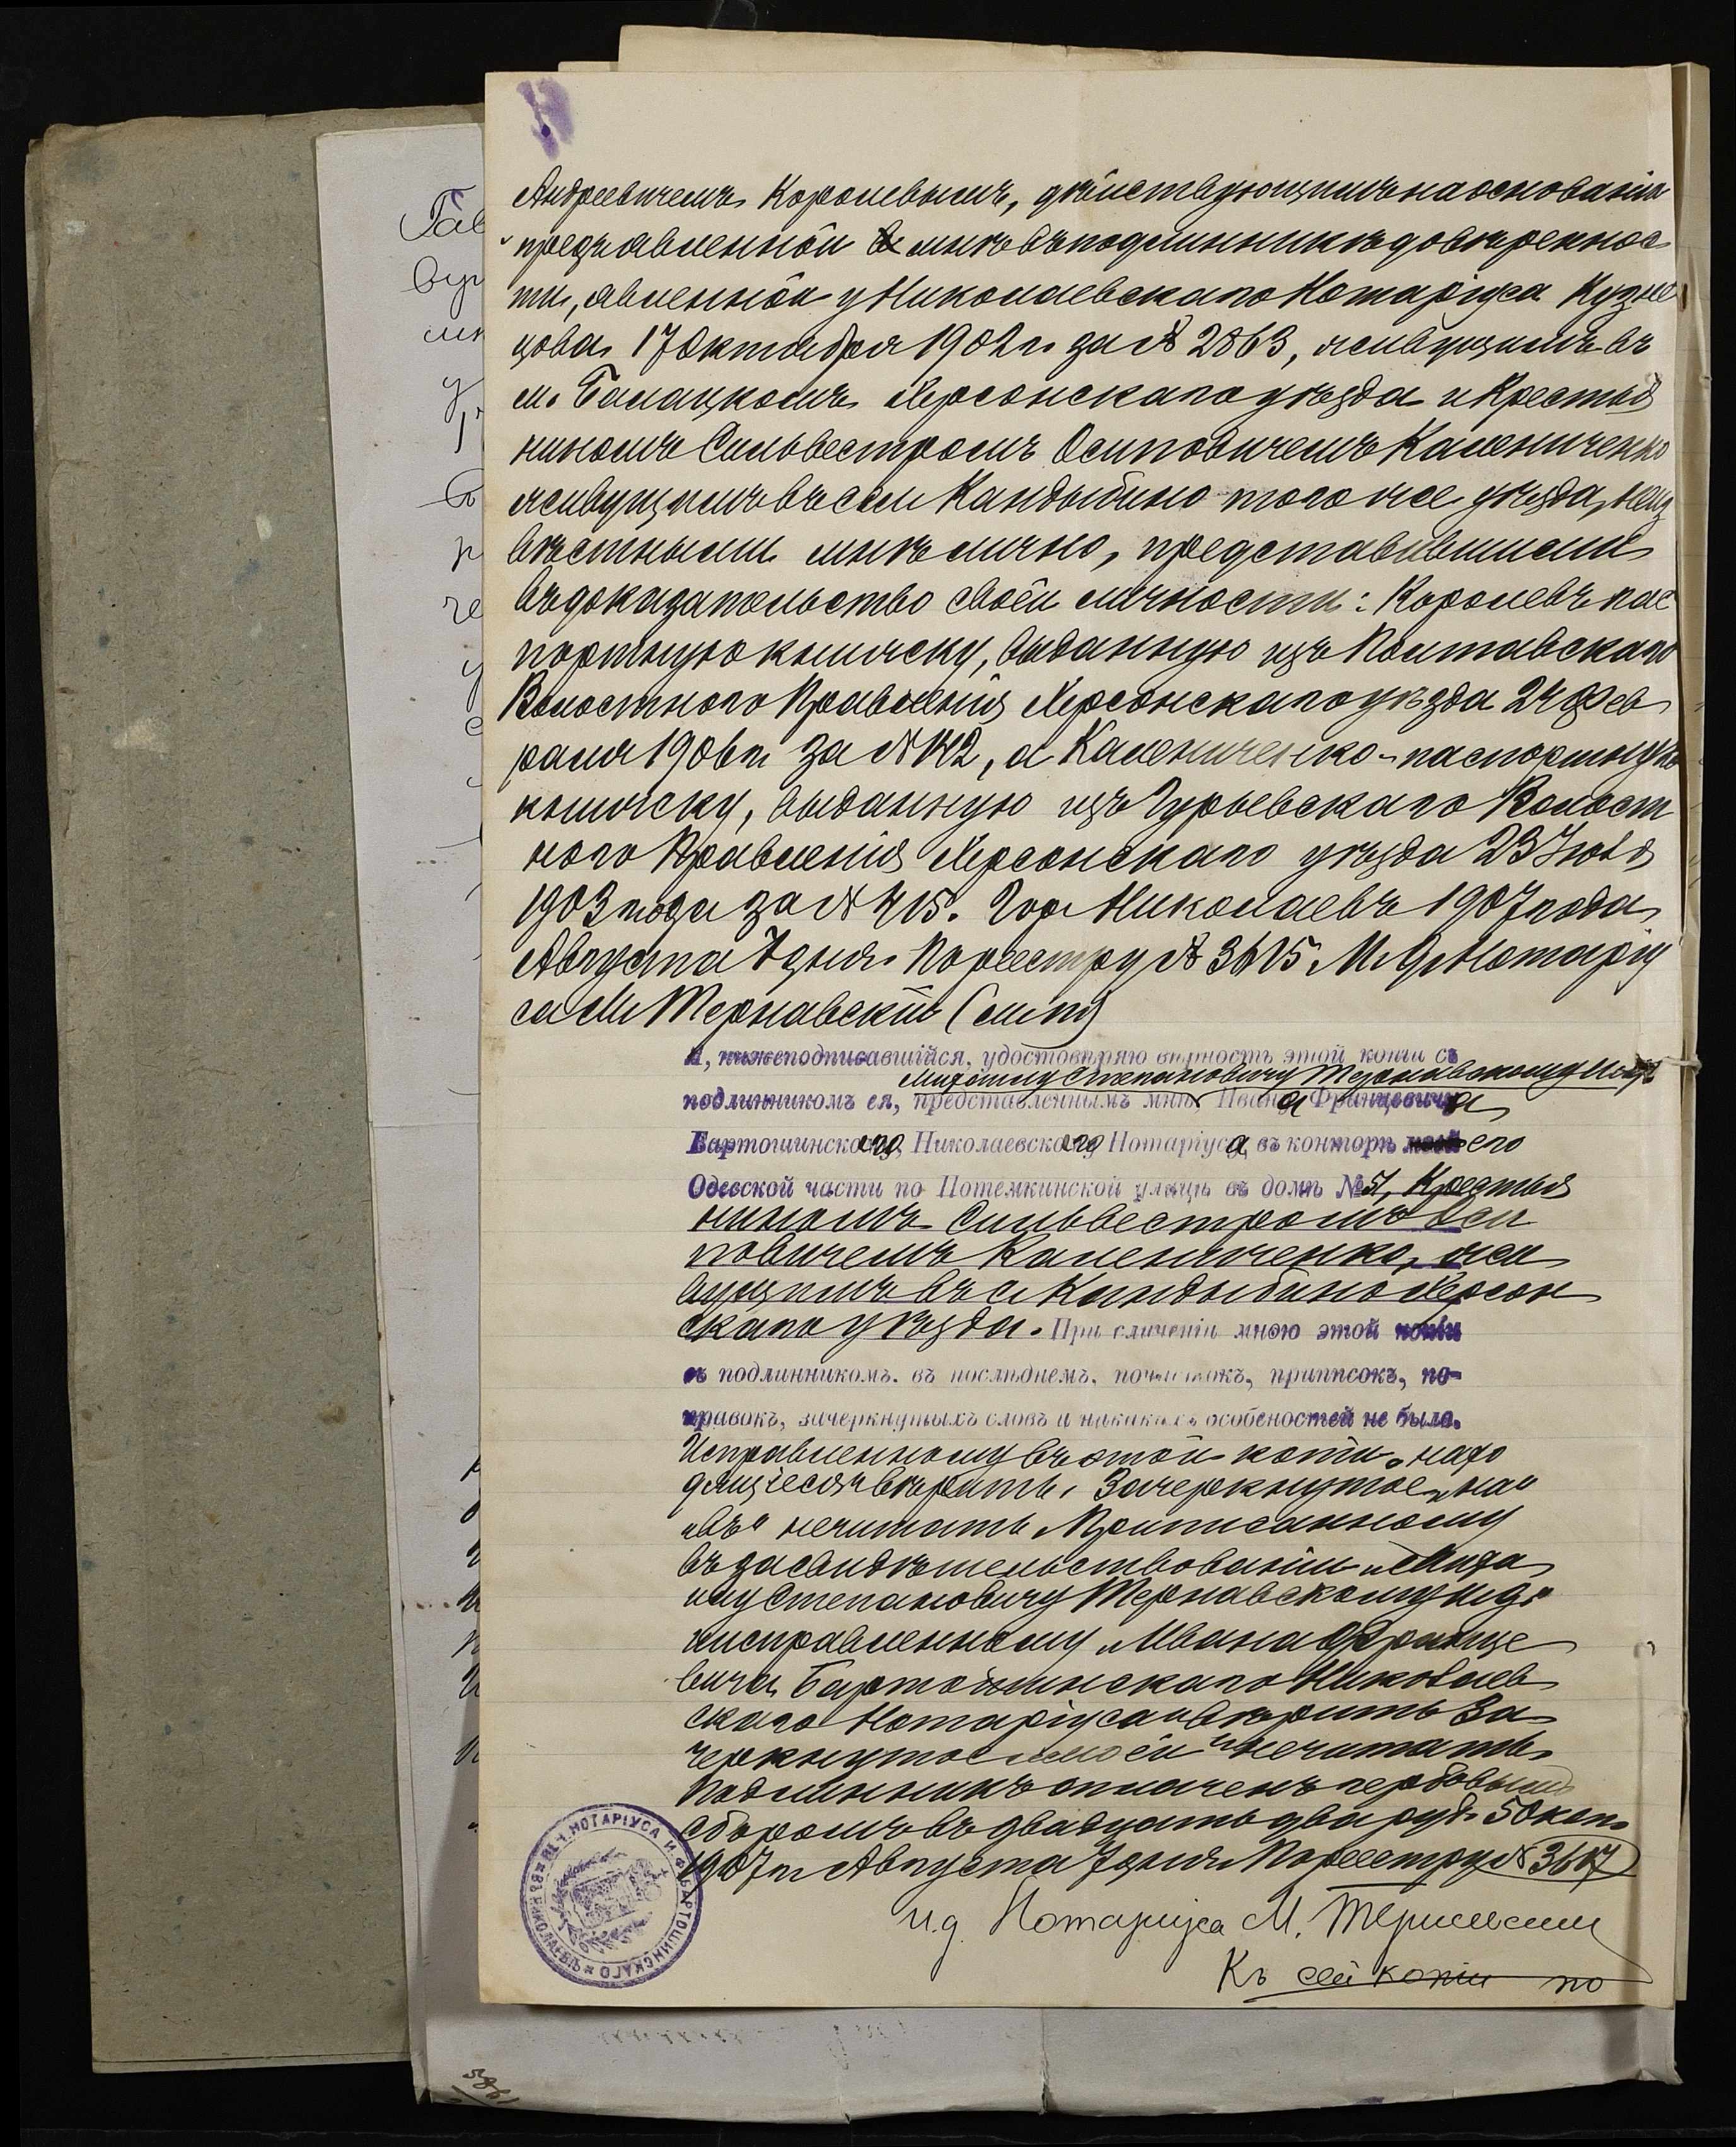 Андреевичемъ Королевымъ, дѣйствующимъ на основаніи
предъявленной мнѣ въ подлинникѣ довѣреннос
ти, явленной у Николаевскаго Нотаріуса Кузне
цова 17 Октября 1902 г. за № 2863, живущимъ въ
м. Балацкомъ Херсонскаго уѣзда и Крестья
ниномъ Сильвестромъ Осиповичемъ Калениченко
живущимъ въ сел. Кандыбино того же уѣзда, неиз
вѣстными мнѣ лично, представившими
въ доказательство своей личности: Королевъ пас
портную книжку, выданную изъ Полтавскаго
Волостного Правленія Херсонскаго уѣзда 24 Фев
раля 1906 г. за № 142, а Калениченко - паспортную
книжку, выданную изъ Гурьевскаго Волост
ного Правленія Херсонскаго уѣзда 23 Іюля
1903 года за № 415. Гор. Николаевъ 1907 года
Августа 7 дня. По реестру № 3615. И. д. Нотаріу
са М. Тернавскій (м. п.)
Я, нижеподписавшійся, удостовѣряю вѣрность этой копіи съ
Михаилу Степановичу Тернавскому И.д.
подлинникомъ ея, представленнымъ мнѣ, Ивана Францевича
Бартошинскаго, Николаевскаго Нотаріуса, въ конторѣ его
Одесской части по Потемкинской улицѣ въ домѣ № 51, Крестья
ниномъ Сильвестромъ Оси
повичемъ Калениченко, жи
вущимъ въ с. Кандыбино Херсон
скаго уѣзда. При сличеніи мною этой копіи
съ подлинникомъ, въ послѣднемъ, почистокъ, приписокъ, по-
правокъ, зачеркнутыхъ словъ и никакихъ особеностей не было.
Исправленному въ этой копіи „нахо
дящіеся" вѣрить. Зачеркнутое „на"
„въ" не читать. Приписанному
въ засвидѣтельствованіи „Миха
илу Степановичу Тернавскому И.д."
исправленному „Ивана Францe
вича Бартошинскаго Николаев
скаго Нотаріуса" вѣрить. За
черкнутое „моей" не читать.
Подлинникъ оплаченъ гербовымъ
сборомъ въ двадцать два руб. 50 коп.
1907 г. Августа 7 дня. По реестру № 3617
И.д. Нотаріуса М. Тернавскій
Къ сей копіи по
ПЕЧ. НОТАРІУСА И. Ф. БАРТОШИНСКАГО * ВЪ Г. НИКОЛАЕВѢ *